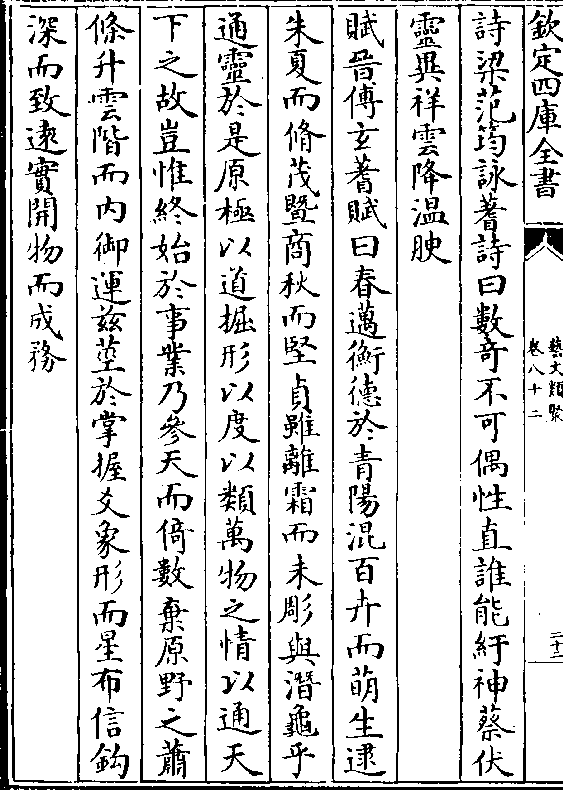 欽定四庫全書
藝文類聚
卷八十二
二十二
詩梁范筠詠蓍詩曰數奇不可偶性直誰能紆神蔡伏
靈異祥雲降温腴
賦晉傅玄蓍賦曰春邁衡德於青陽混百卉而萌生逮
朱夏而脩茂暨商秋而堅貞雖離霜而未彫與潛龜乎
通靈於是原極以道掘形以度以類萬物之情以通天
下之故豈惟終始於事業乃參天而倚數棄原野之蕭
條升雲階而内御運兹莖於掌握爻象形而星布信鈎
深而致遠實開物而成務